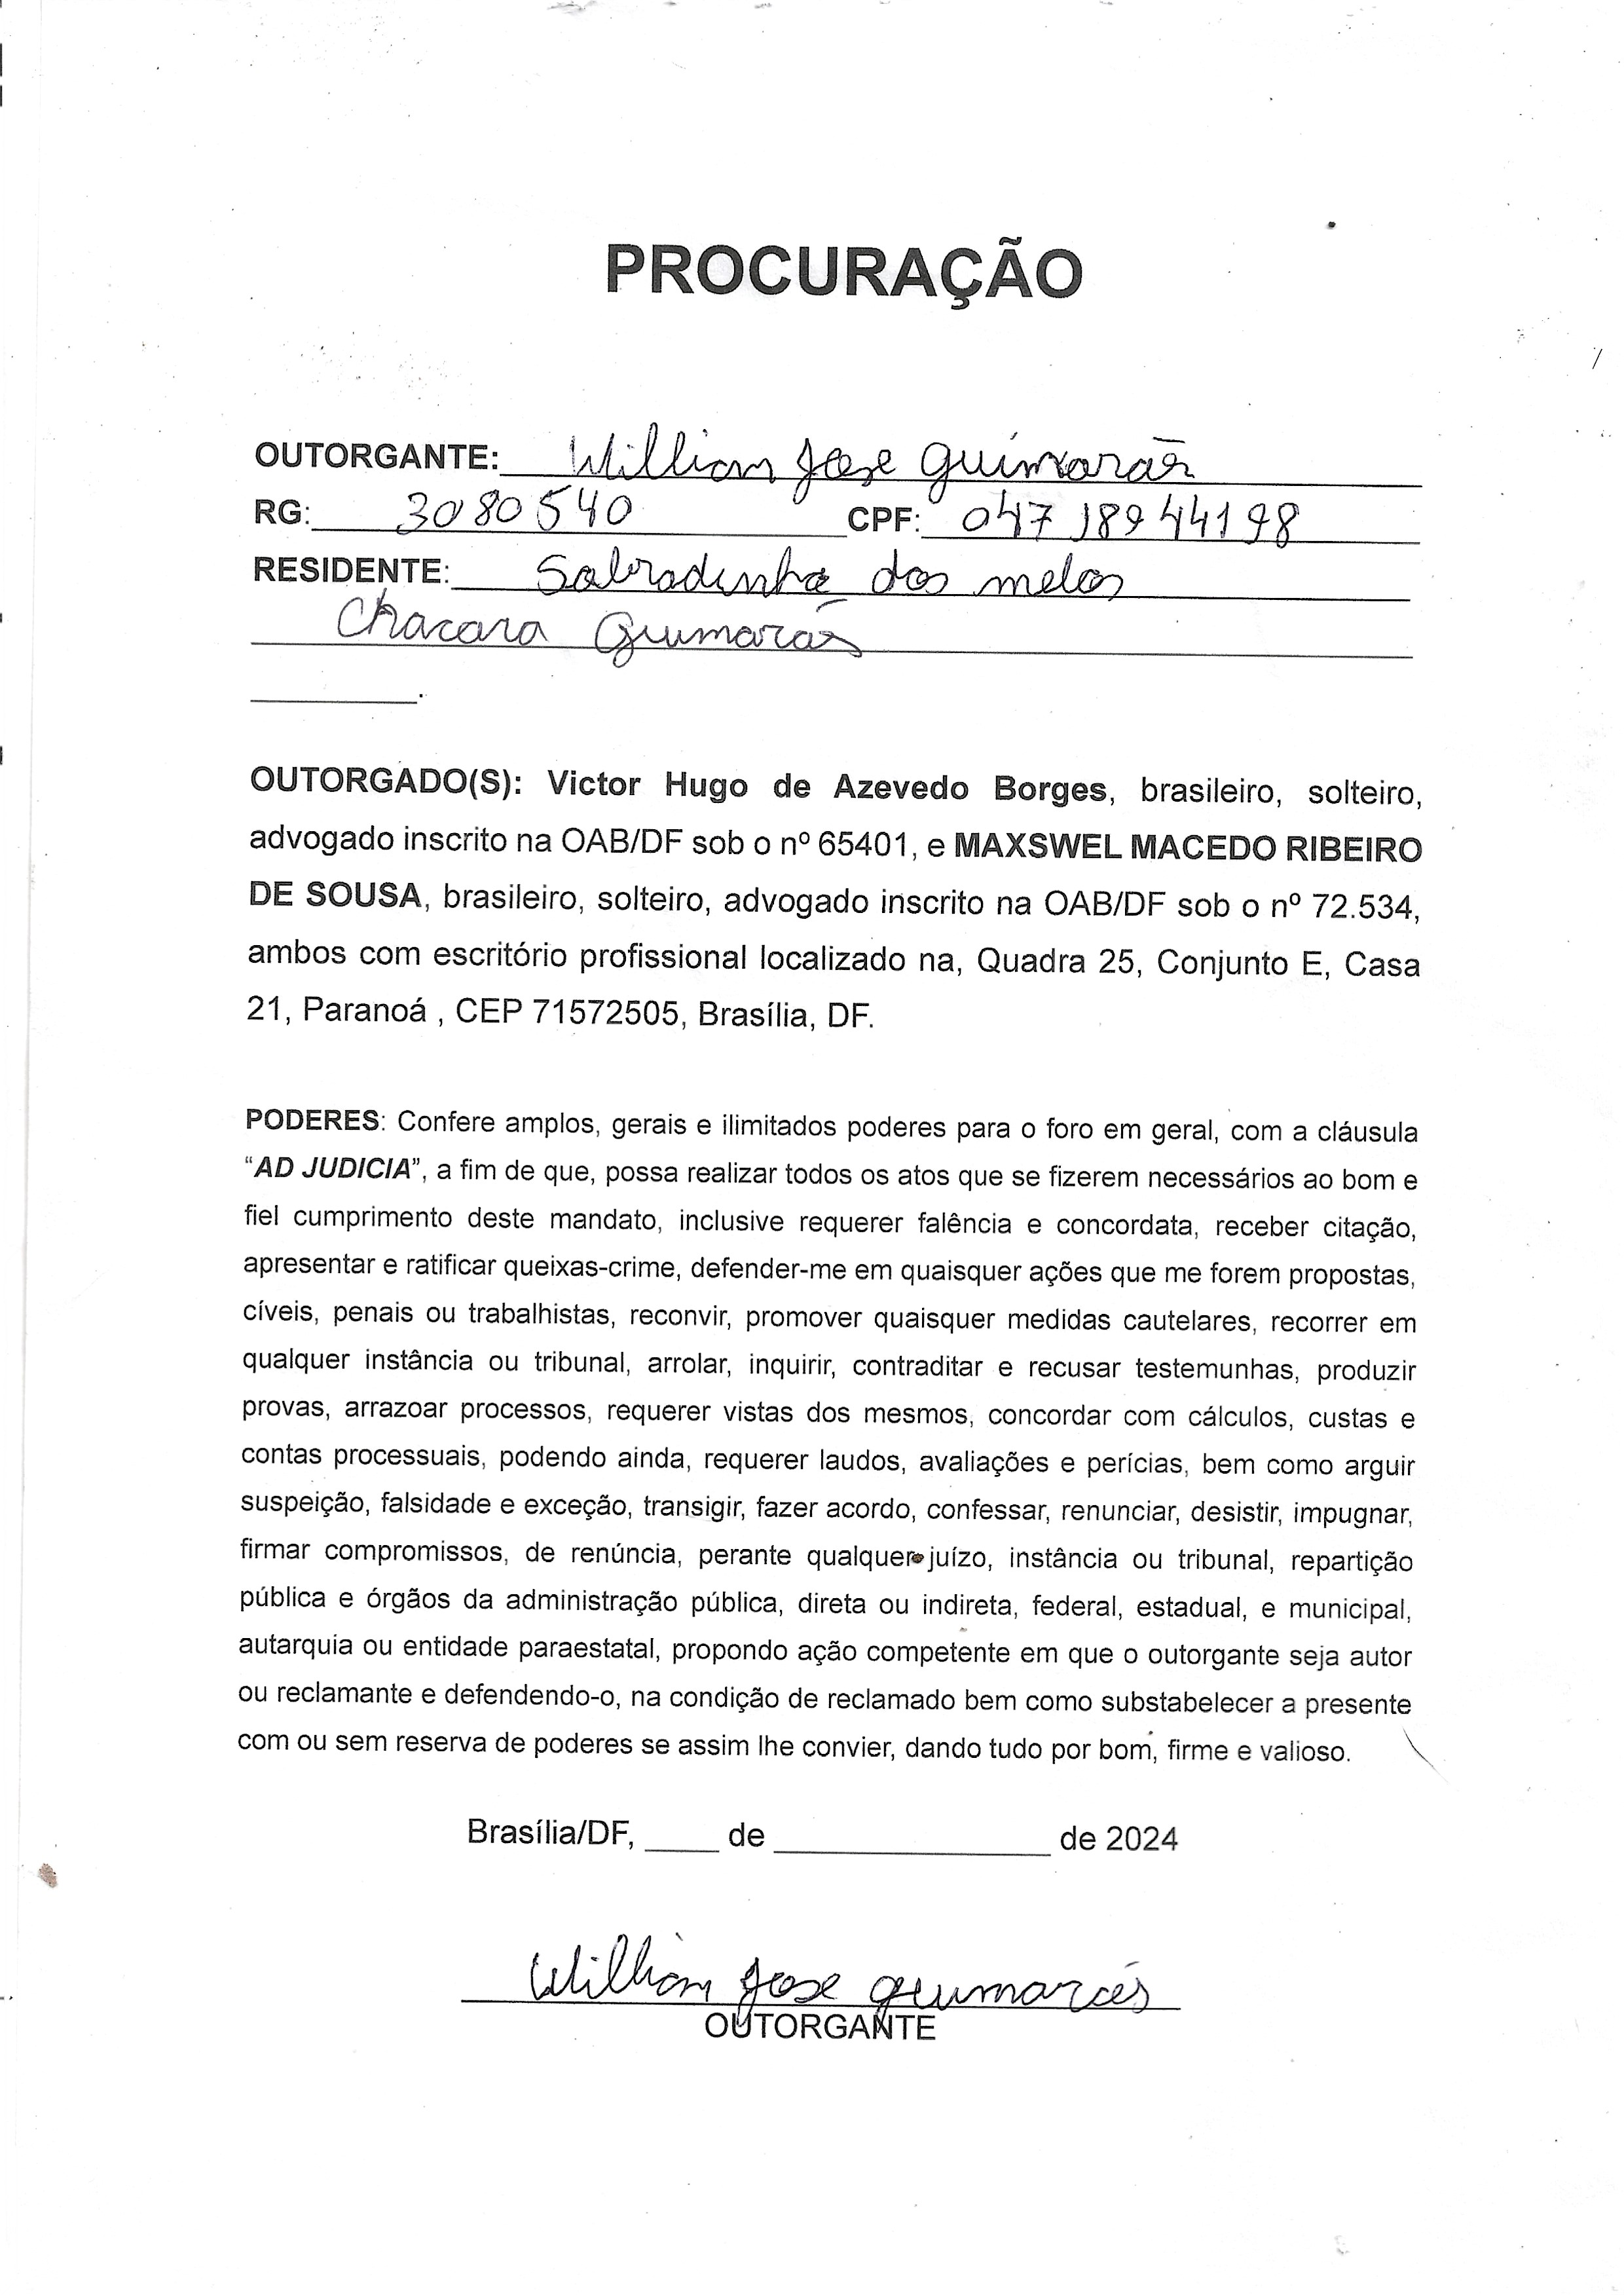 PROCURAÇÃO
OUTORGANTE: Willian Jose Guimarães
RG: 3080540 CPF: 047 189 441 98
RESIDENTE: Sobradinho dos melos
Chacara Guimarães
OUTORGADO(S): Victor Hugo de Azevedo Borges, brasileiro, solteiro,
advogado inscrito na OAB/DF sob o nº 65401, e MAXSWEL MACEDO RIBEIRO
DE SOUSA, brasileiro, solteiro, advogado inscrito na OAB/DF sob o nº 72.534,
ambos com escritório profissional localizado na, Quadra 25, Conjunto E, Casa
21, Paranoá , CEP 71572505, Brasília, DF.
PODERES: Confere amplos, gerais e ilimitados poderes para o foro em geral, com a cláusula
“AD JUDICIA”, a fim de que, possa realizar todos os atos que se fizerem necessários ao bom e
fiel cumprimento deste mandato, inclusive requerer falência e concordata, receber citação,
apresentar e ratificar queixas-crime, defender-me em quaisquer ações que me forem propostas,
cíveis, penais ou trabalhistas, reconvir, promover quaisquer medidas cautelares, recorrer em
qualquer instância ou tribunal, arrolar, inquirir, contraditar e recusar testemunhas, produzir
provas, arrazoar processos, requerer vistas dos mesmos, concordar com cálculos, custas e
contas processuais, podendo ainda, requerer laudos, avaliações e perícias, bem como arguir
suspeição, falsidade e exceção, transigir, fazer acordo, confessar, renunciar, desistir, impugnar,
firmar compromissos, de renúncia, perante qualquer juízo, instância ou tribunal, repartição
pública e órgãos da administração pública, direta ou indireta, federal, estadual, e municipal,
autarquia ou entidade paraestatal, propondo ação competente em que o outorgante seja autor
ou reclamante e defendendo-o, na condição de reclamado bem como substabelecer a presente
com ou sem reserva de poderes se assim lhe convier, dando tudo por bom, firme e valioso.
Brasília/DF, ____ de ______________ de 2024
Willian Jose Guimarães
OUTORGANTE